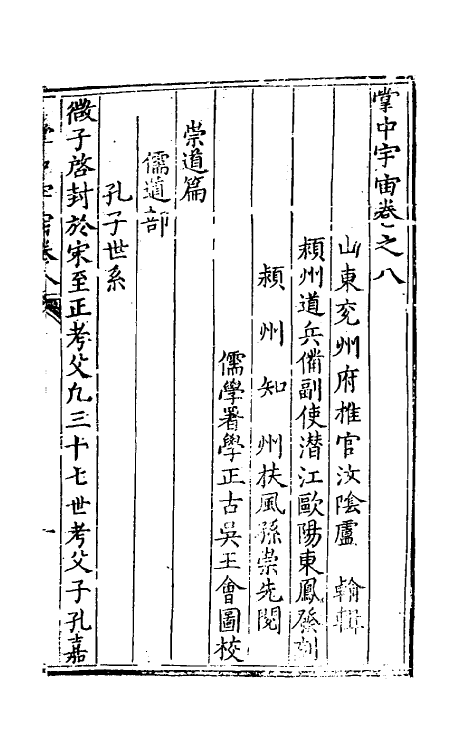 掌中宇宙卷之八
山東兖州府推官汝陰盧翰輯
潁州道兵備副使潛江歐陽東鳳發刻
潁州知州扶風孫崇先閱
儒學署學正古吳王會圖校
崇道篇
儒道部
孔子世系
微子啓封於宋至正考父九三十七世考父子孔嘉
掌中宇宙卷八
一